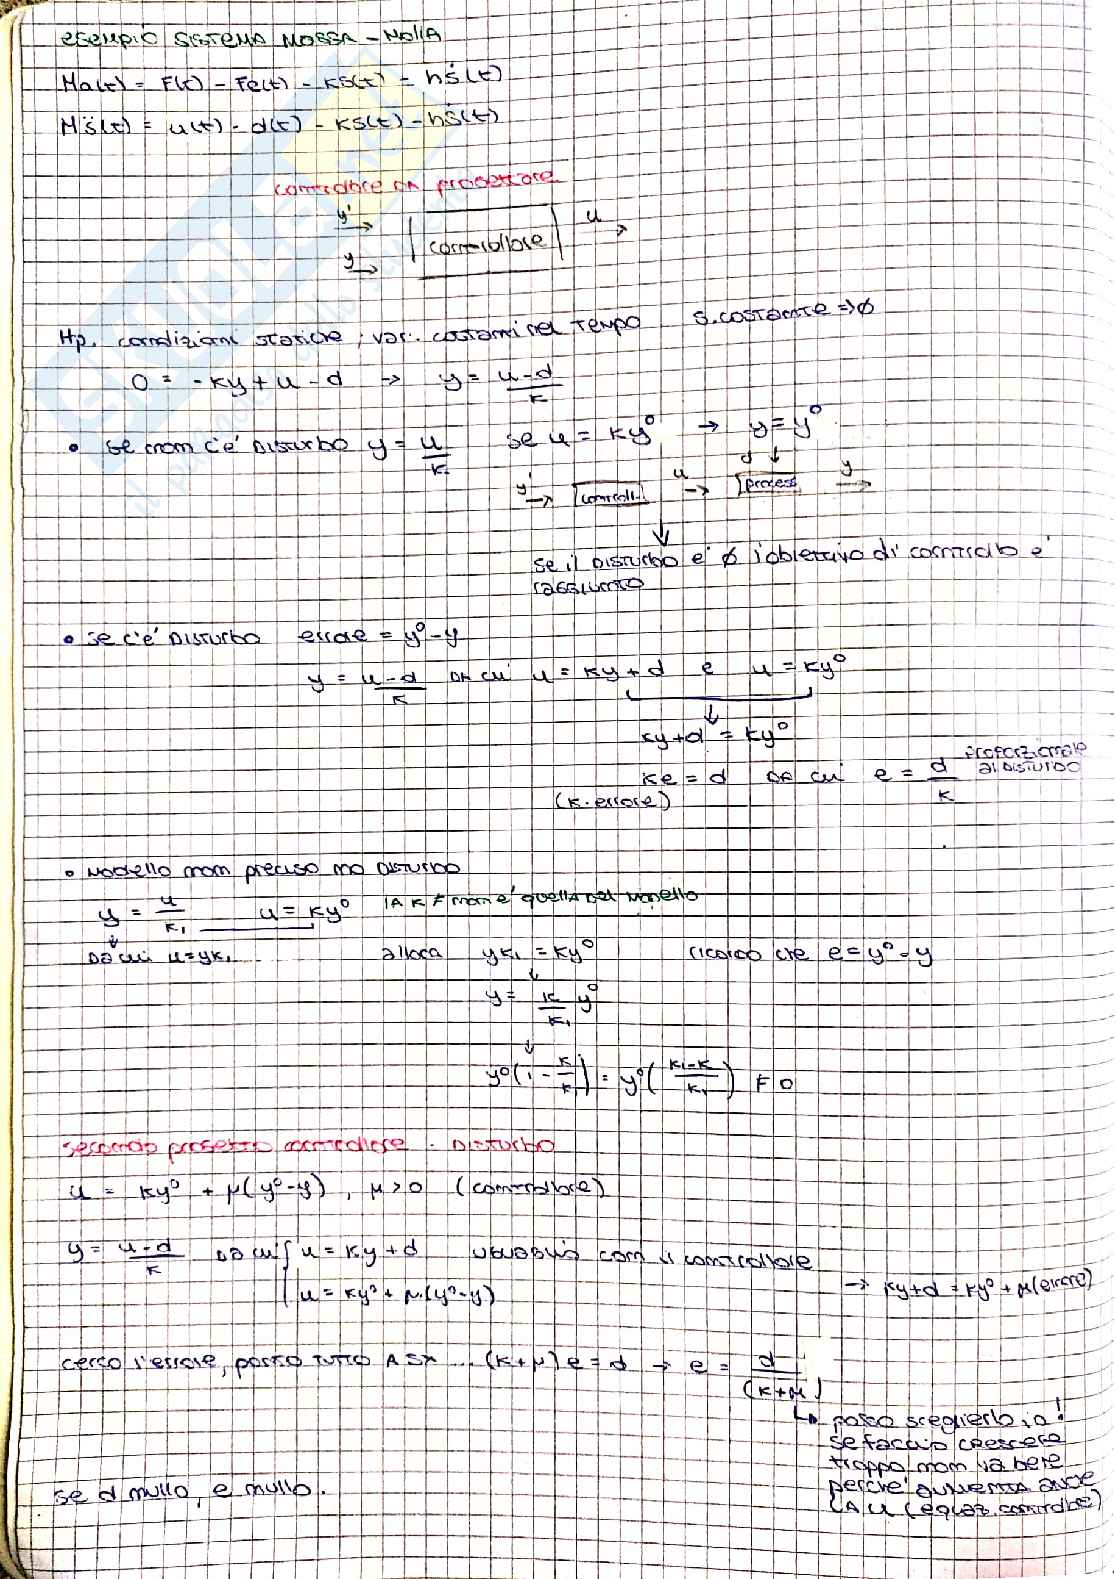 esempio SISTEMA MASSA - MOLLA
Ma(t) = F(t) - Fe(t) - KS(t) - hṡ(t)
Ms̈(t) = u(t) - d(t) - KS(t) - hṡ(t)
controllore DA progettare
y°
y
controllore
u
Hp. condizioni statiche, var. costanti nel TEMPO S.COSTANTE => ∅
0 = -Ky + u - d → y = u-d/K
• se non c'è DISTURBO y = u/K se u = Ky° → y = y°
y° → controll. u → process d ↓ y →
se il DISTURBO è ∅ l'obiettivo di controllo è
raggiunto
• se c'è DISTURBO errore = y° - y
y = u-d/K DA cui u = Ky + d e u = Ky°
Ky + d = Ky°
Ke = d DA cui e = d/K proporzionale al DISTURBO
(K. errore)
• Modello non preciso no DISTURBO
y = u/K₁ u = Ky° LA K ≠ non è quella del modello
DA cui u = yK₁ allora yK₁ = Ky° ricordo che e = y° - y
y = K/K₁ y°
y°(1 - K/K₁) = y°(K₁-K/K₁) ≠ 0
secondo progetto controllore . DISTURBO
u = Ky° + μ(y°-y), μ>0 (controllore)
y = u-d/K DA cui { u = Ky + d uguaglio con il controllore
u = Ky° + μ.(y°-y)
→ Ky+d = Ky° + μ(errore)
cerco l'errore, porto TUTTO A SX ... (K+μ)e = d → e = d/(K+μ)
↳ posso sceglierlo io!
se faccio crescere
troppo non va bene
perché aumenta anche
LA u (equaz. controllore)
se d nullo, e nullo.
il